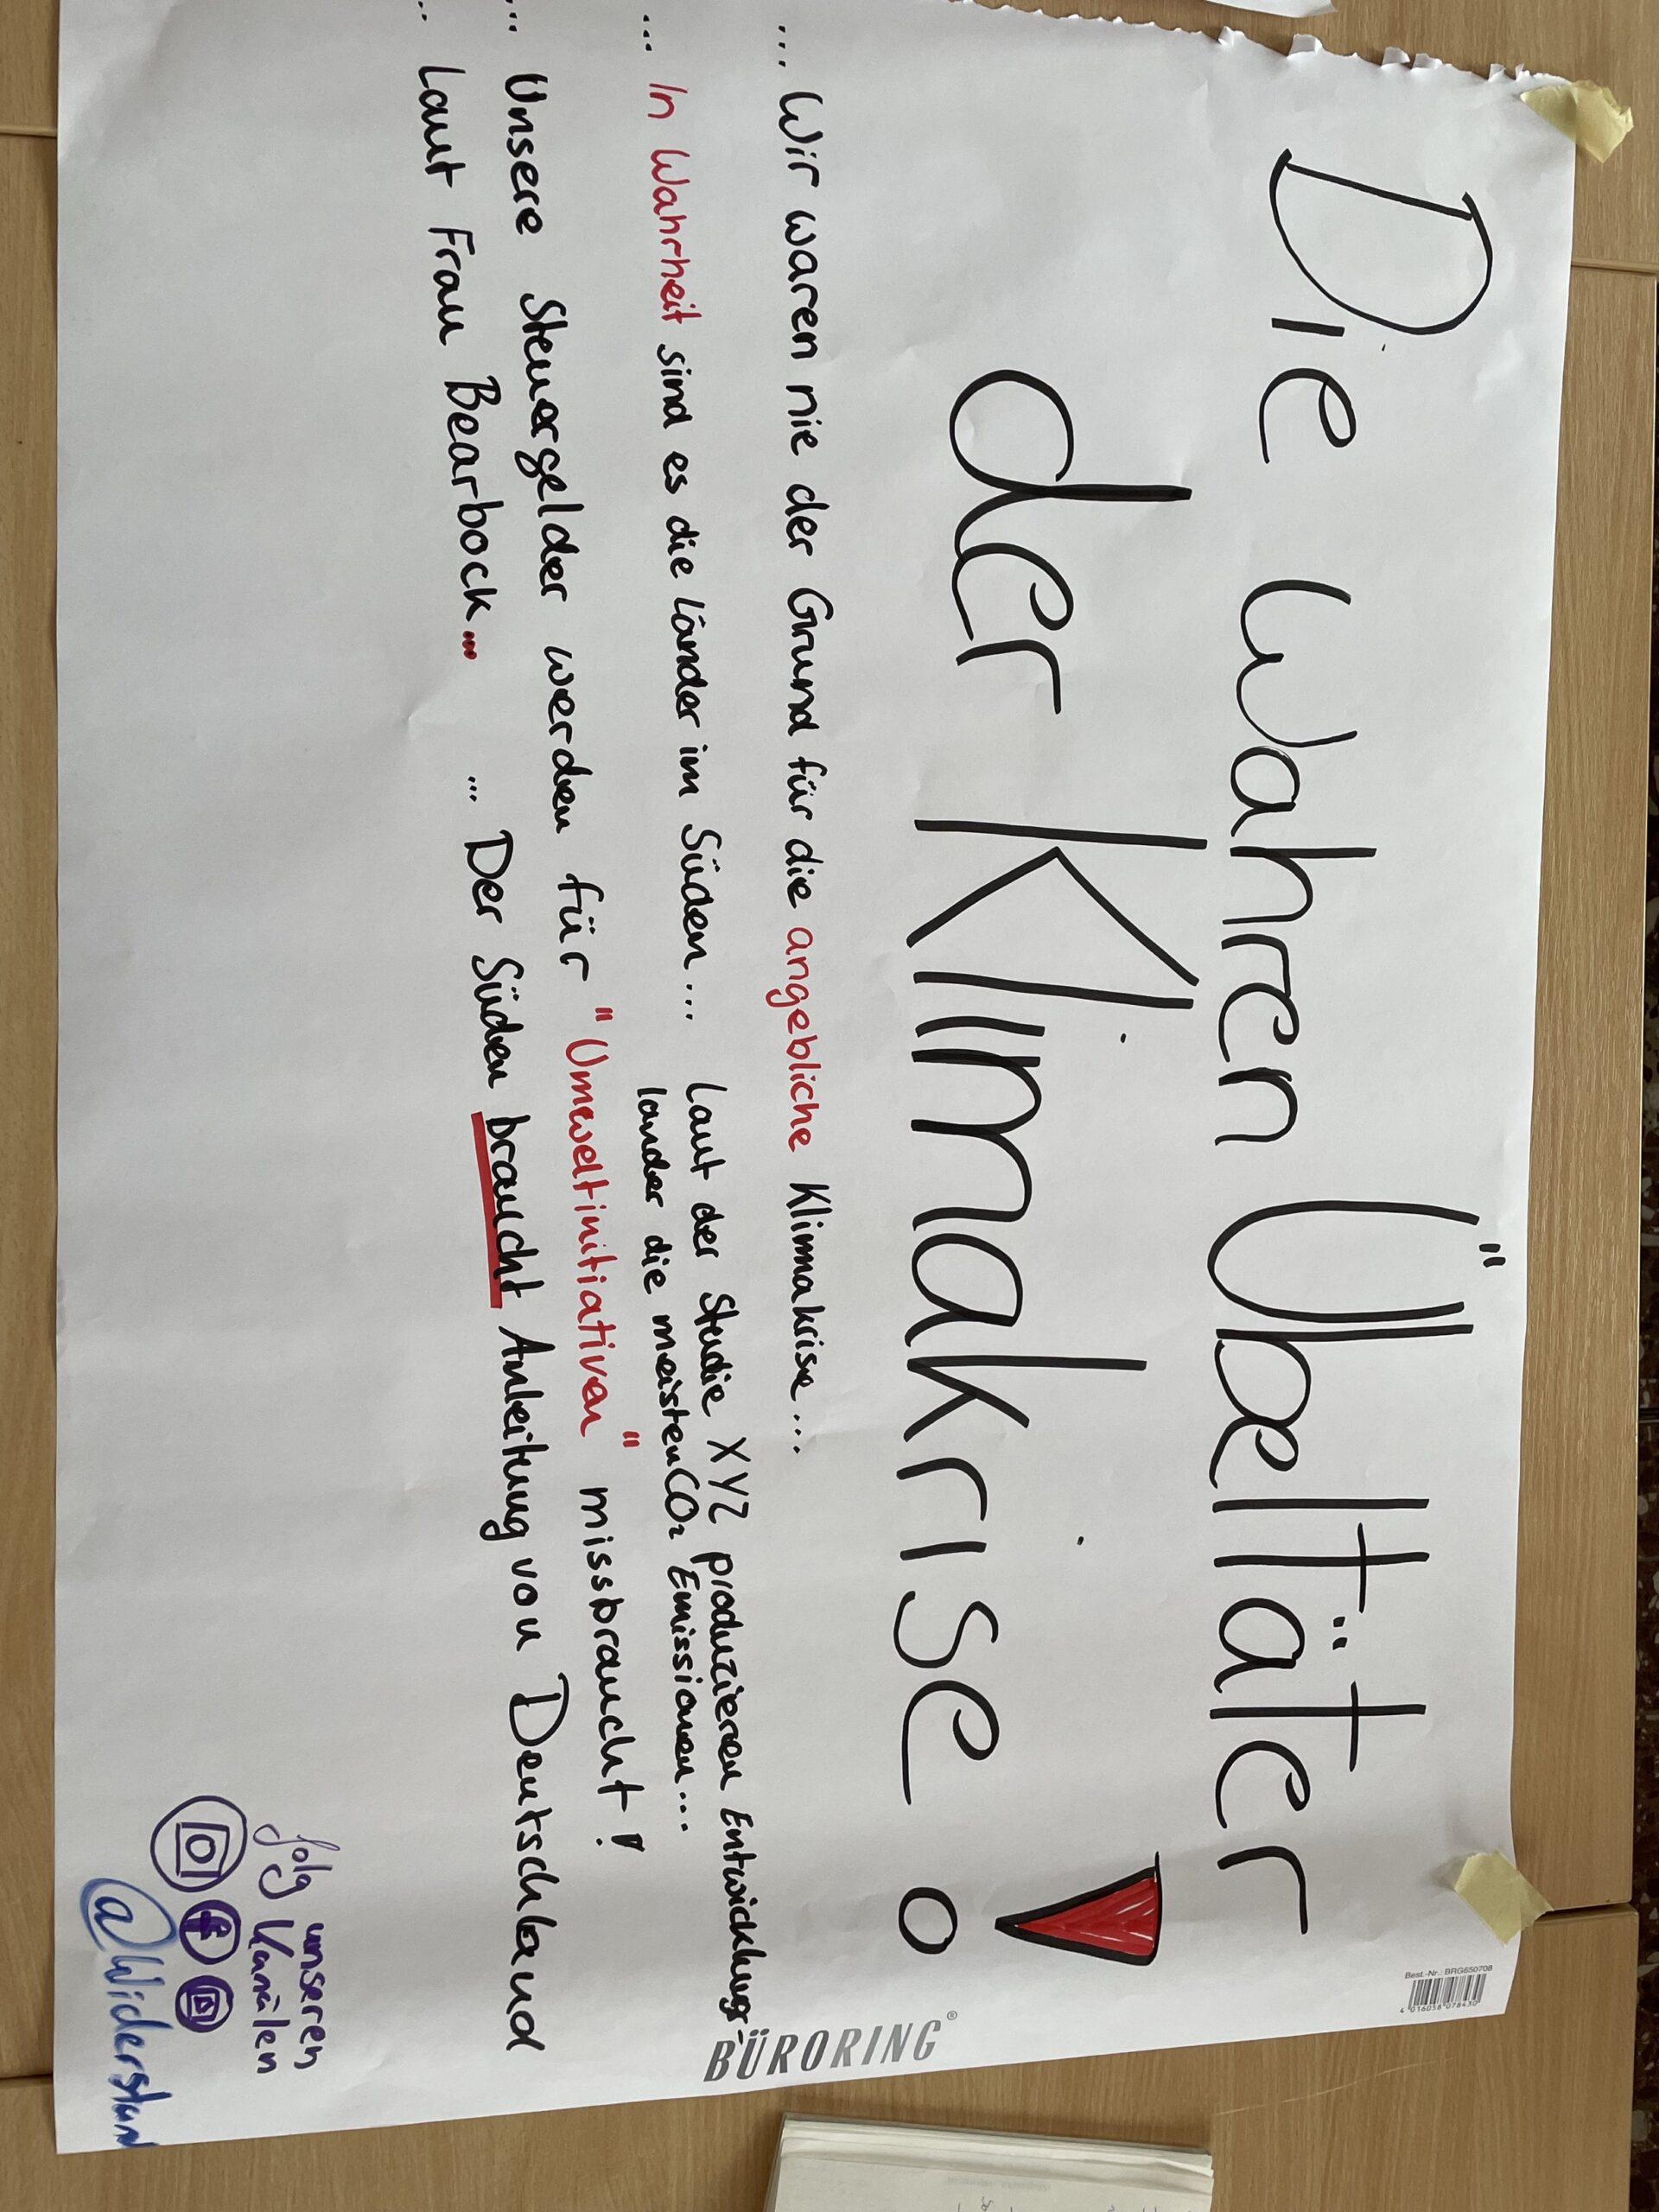 Die wahren Übeltäter
der Klimakrise!
... Wir waren nie der Grund für die angebliche Klimakrise...
... In Wahrheit sind es die Länder im Süden... Laut der Studie XYZ produzieren Entwicklungs-
länder die meisten CO₂ Emissionen...
... Unsere Steuergelder werden für "Umweltinitiativen" missbraucht!
... Laut Frau Bearbock... ... Der Süden braucht Anleitung von Deutschland
folg unseren
Kanälen
@Widerstand
BÜRORING®
Best.-Nr.: BRG650708
4 016058 078430